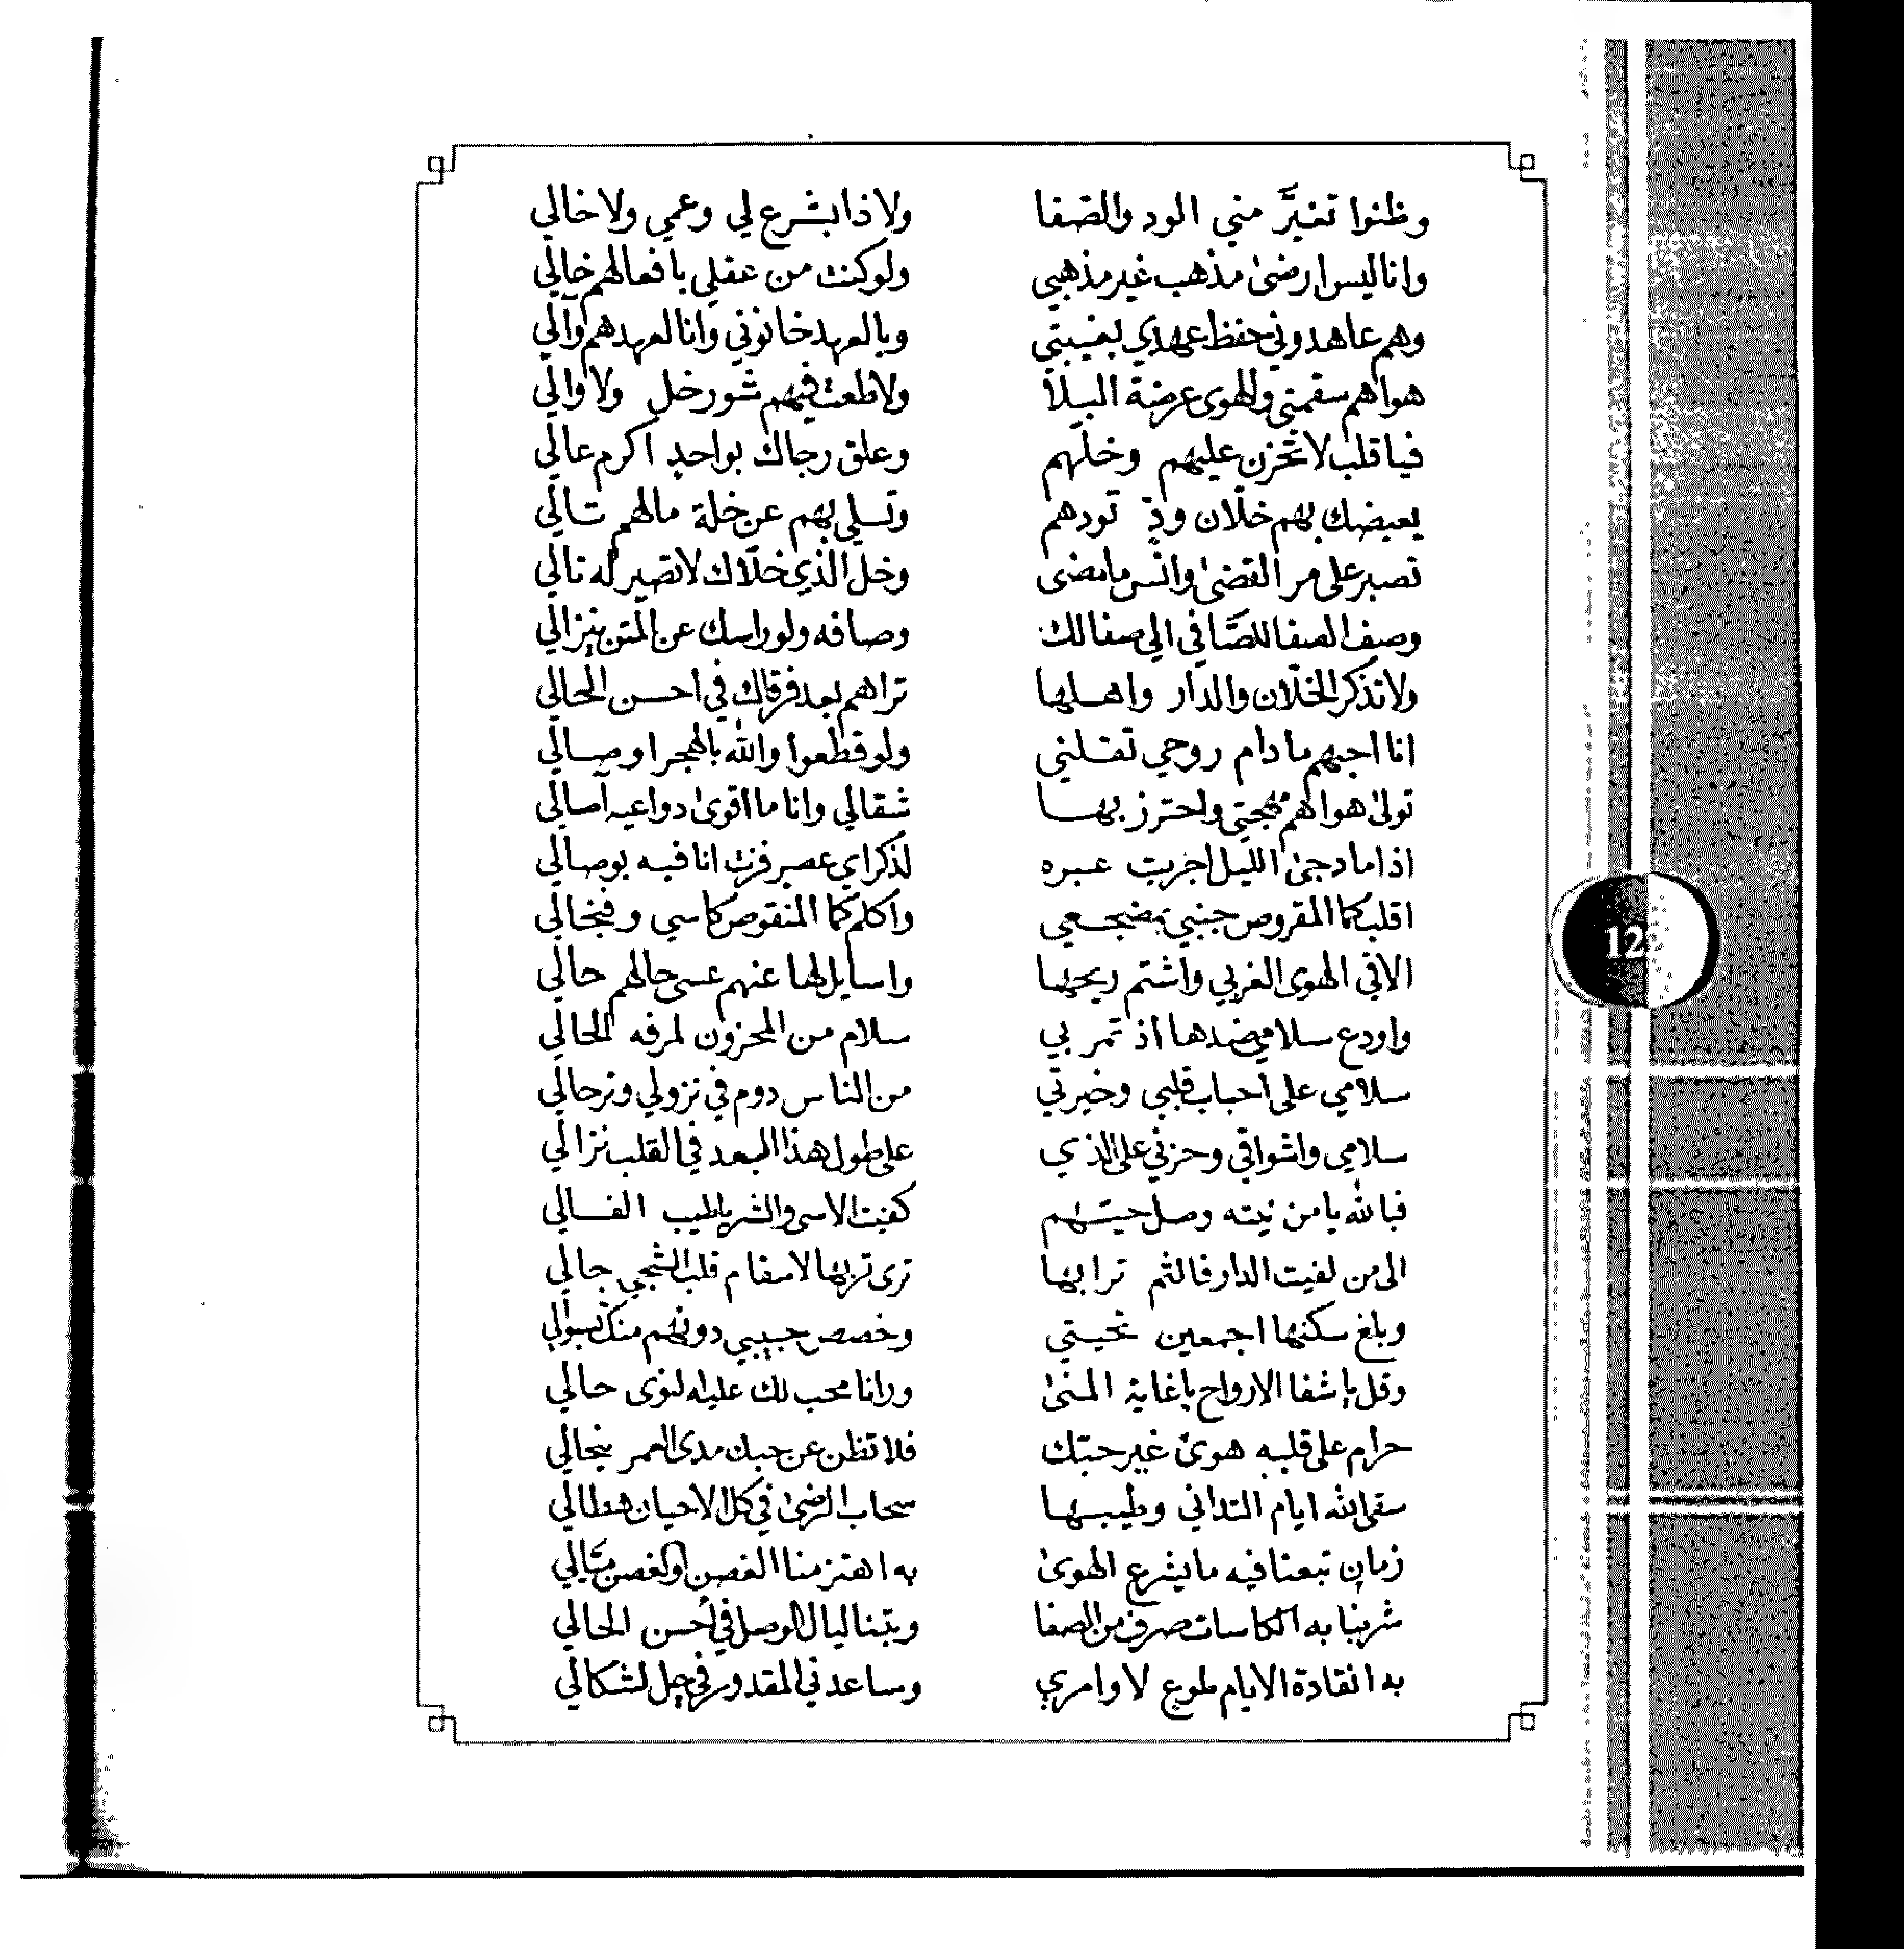 وظنوا تغيَّر مني الود والصفا ولا ذا بشرع لي وعمي ولا خالي
وانا ليس ارضى مذهب غير مذهبي ولو كنت من عقلي بافعالهم خالي
وهم عاهدوني حفظ عهدي بغيبتي وبالعهد خانوني وانا لعهدهم والي
هواهم سقمني والهوى عرضة البلا ولا طعت فيهم شور خل ولا والي
فيا قلب لا تحزن عليهم وخلهم وعلق رجاك بواحدٍ اكرم عالي
يعيضك بهم خلان ودٍ تودهم وتسلي بهم عن خلة مالهم تالي
تصبر على مر القضى وانس ما مضى وخل الذي خلاك لا تصير له تالي
وصف الصفا للصَّافي الي صفا لك وصافه ولو راسك عن المتن ينزالي
ولا تذكر الخلّان والدار واهلها تراهم بعد فرقاك في أحسن الحالي
انا احبهم ما دام روحي تقلني ولو قطعوا والله بالهجر اوصالي
تولى هواهم مهجتي واحترز بها شقالي وانا ما اقوى دواعيه آصالي
اذا ما دجى الليل اجريت عبره لذكراي عصر فزت انا فيه بوصالي
اقلب كما المقروص جنبي بمضجعي واكلم كما المنقوص كاسي وفنجالي
الاقي الهوى الغربي واشتم ريحها واسايل لها عنهم عسى حالهم حالي
واودع سلامي ضدها اذ تمر بي سلام من المحزون لمرفه الحالي
سلامي على أحباب قلبي وخيرتي من الناس دوم في نزولي وترحالي
سلامي واشواقي وحزني على الذي على طول هذا البعد في القلب نزالي
فبالله يا من نيته وصل حيّهم كفيت الاسى والشر يا طيب الفالي
الى من لفيت الدار فالثم ترابها ترى تربها لاسقام قلب الشجي جالي
وبلغ سكنها اجمعين تحيتي وخصص حبيبي دونهم منك بسوالي
وقل يا شفا الارواح يا غاية المنى ورانا محب لك عليله لنوى حالي
حرام على قلبه هوىً غير حبّك فلا تظن عن حبك مدى العمر ينجالي
سقى الله ايام التداني وطيبها سحاب الرضى في كل الاحيان هطالي
زمان تبعنا فيه ما يشرع الهوى به اهتز منا الغصن والغصن ميّالي
شربنا به الكاسات صرف من الصفا وبتنا ليال الوصل في أحسن الحالي
به انقادة الايام طوع لاوامري وساعدني المقدور في حل لشكالي
12